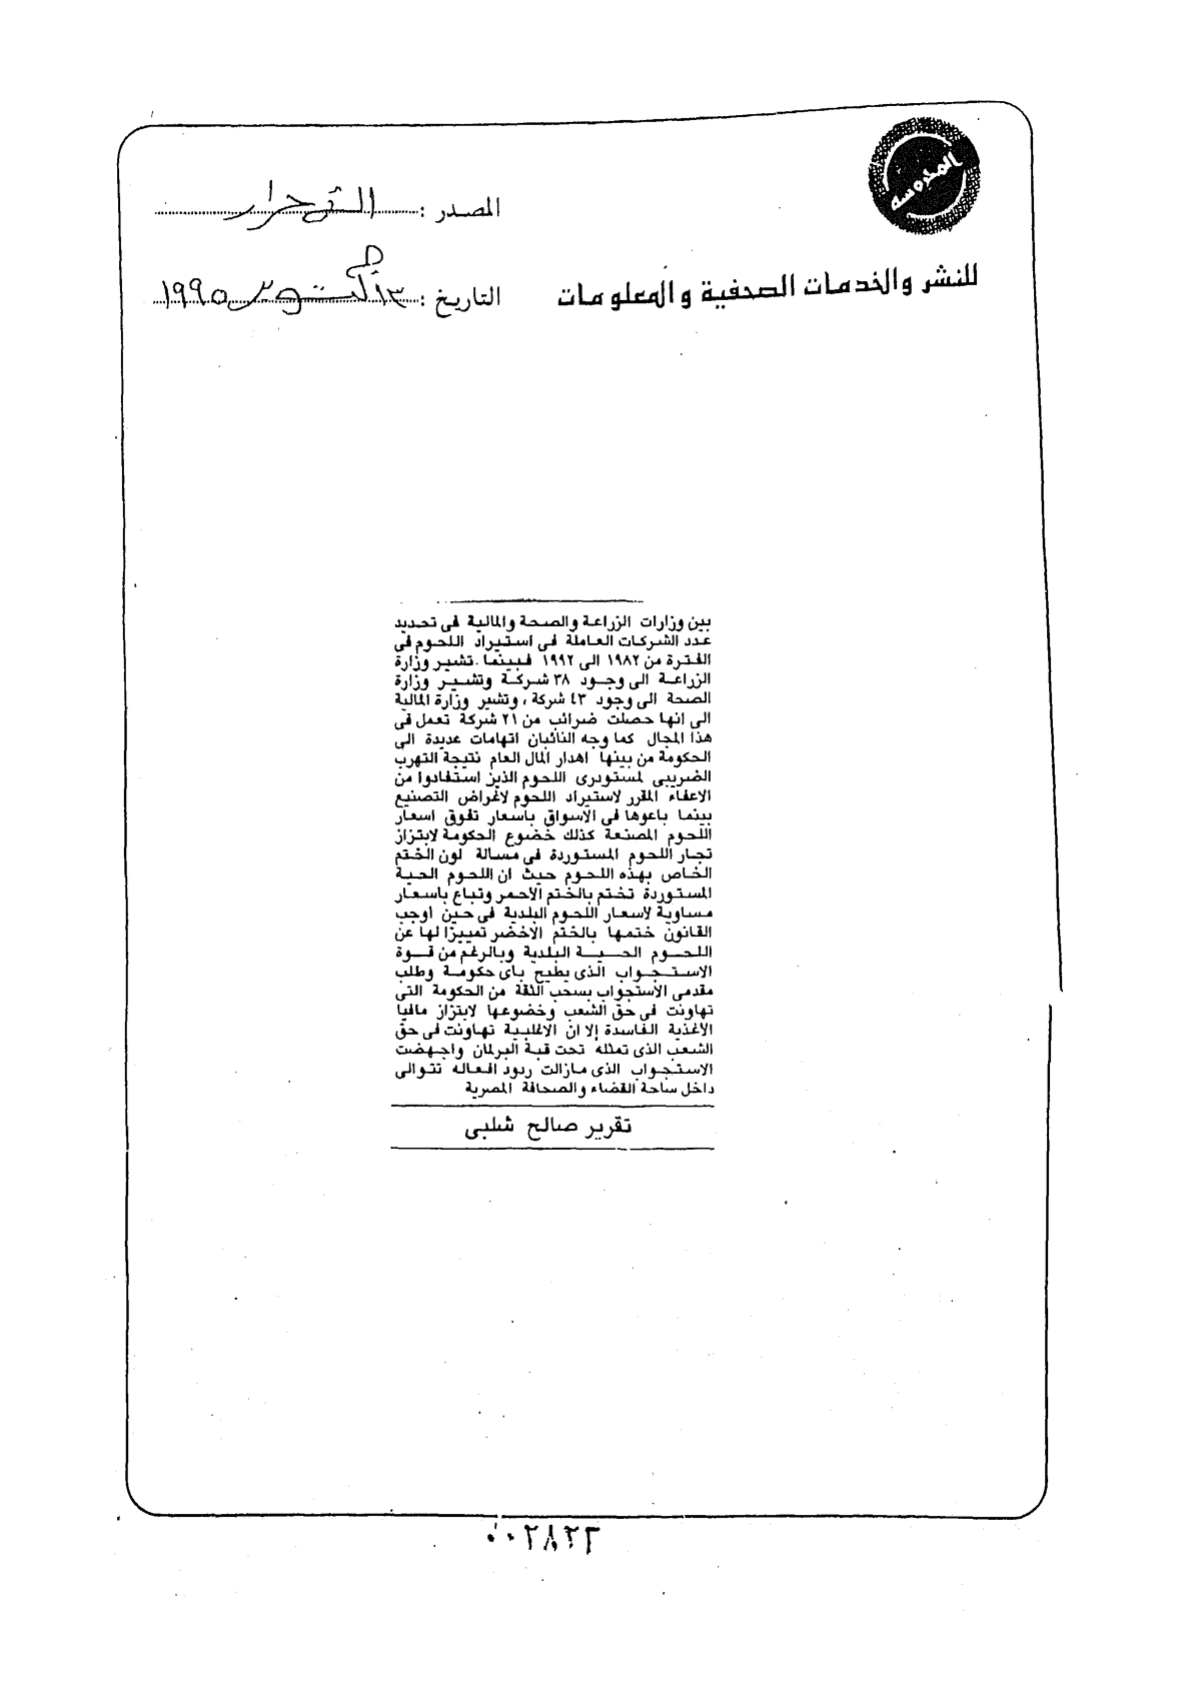 المحروسة
المصدر : الأحرار
للنشر والخدمات الصحفية والمعلومات
التاريخ : ١٣ أكتوبر ١٩٩٥
بين وزارات الزراعة والصحة والمالية فى تحديد
عدد الشركات العاملة فى استيراد اللحوم فى
الفترة من ١٩٨٢ الى ١٩٩٢ فبينما تشير وزارة
الزراعة الى وجود ٣٨ شركة وتشير وزارة
الصحة الى وجود ٤٣ شركة ، وتشير وزارة المالية
الى انها حصلت ضرائب من ٢١ شركة تعمل فى
هذا المجال كما وجه النائبان اتهامات عديدة الى
الحكومة من بينها اهدار المال العام نتيجة التهرب
الضريبى لمستوردى اللحوم الذين استفادوا من
الاعفاء المقرر لاستيراد اللحوم لاغراض التصنيع
بينما باعوها فى الاسواق باسعار تفوق اسعار
اللحوم المصنعة كذلك خضوع الحكومة لابتزاز
تجار اللحوم المستوردة فى مسالة لون الختم
الخاص بهذه اللحوم حيث ان اللحوم الحية
المستوردة تختم بالختم الاحمر وتباع باسعار
مساوية لاسعار اللحوم البلدية فى حين اوجب
القانون ختمها بالختم الاخضر تمييزا لها عن
اللحوم الحية البلدية وبالرغم من قوة
الاستجواب الذى يطيح باى حكومة وطلب
مقدمى الاستجواب بسحب الثقة من الحكومة التى
تهاونت فى حق الشعب وخضوعها لابتزاز مافيا
الاغذية الفاسدة إلا ان الاغلبية تهاونت فى حق
الشعب الذى تمثله تحت قبة البرلمان واجهضت
الاستجواب الذى مازالت ردود افعاله تتوالى
داخل ساحة القضاء والصحافة المصرية
تقرير صالح شلبى